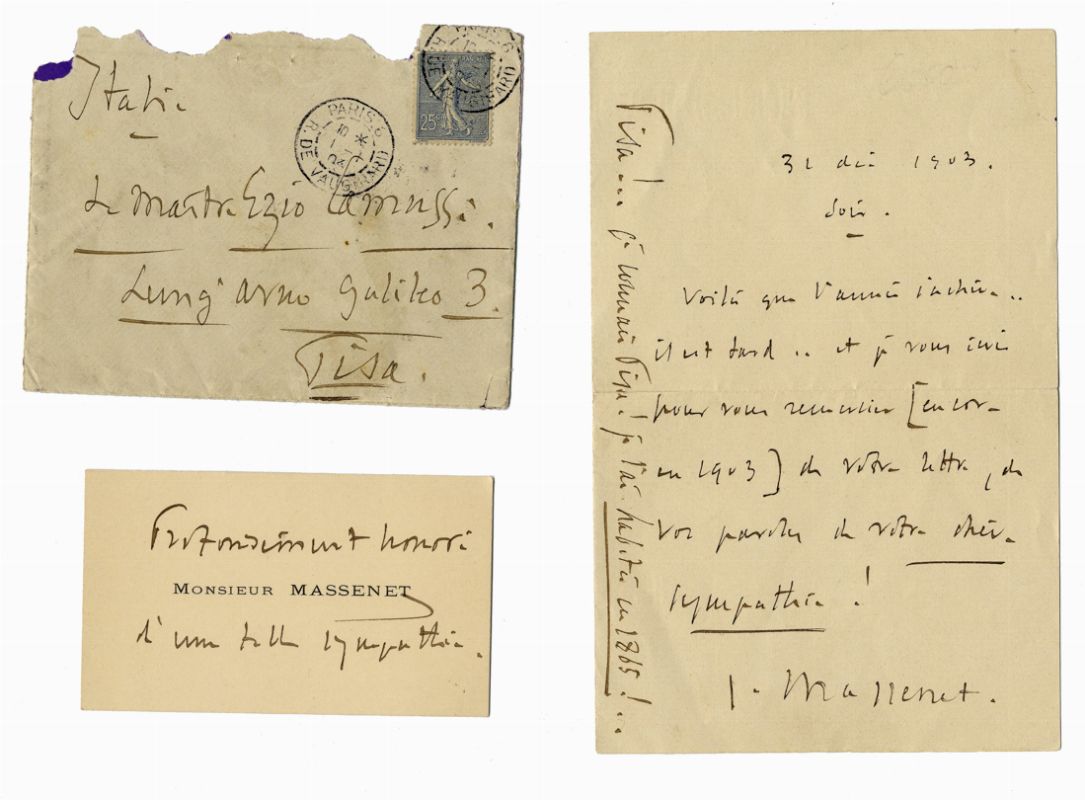 Italie
Le Maestro Ezio Camussi.
Lung'arno Galileo 3.
Pisa.
PARIS 6
R. DE VAUGIRARD
25c
Profondément honoré
MONSIEUR MASSENET
d'une telle sympathie.
31 déc 1903.
Soir.
Voilà que l'année s'achève..
il est tard .. et je vous écris
pour vous remercier [encore
en 1903] de votre lettre, de
vos paroles de votre chère
sympathie !
J. Massenet.
Pisa!... je connais Pisa! je l'ai habitée en 1865!...